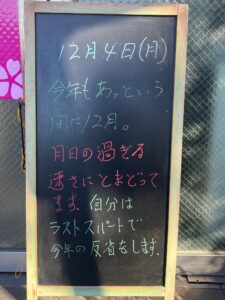 12月4日(月)
今年もあっという
間に12月。
月日の過ぎる
速さにとまどって
ます。自分は
ラストスパートで
今年の反省をします。